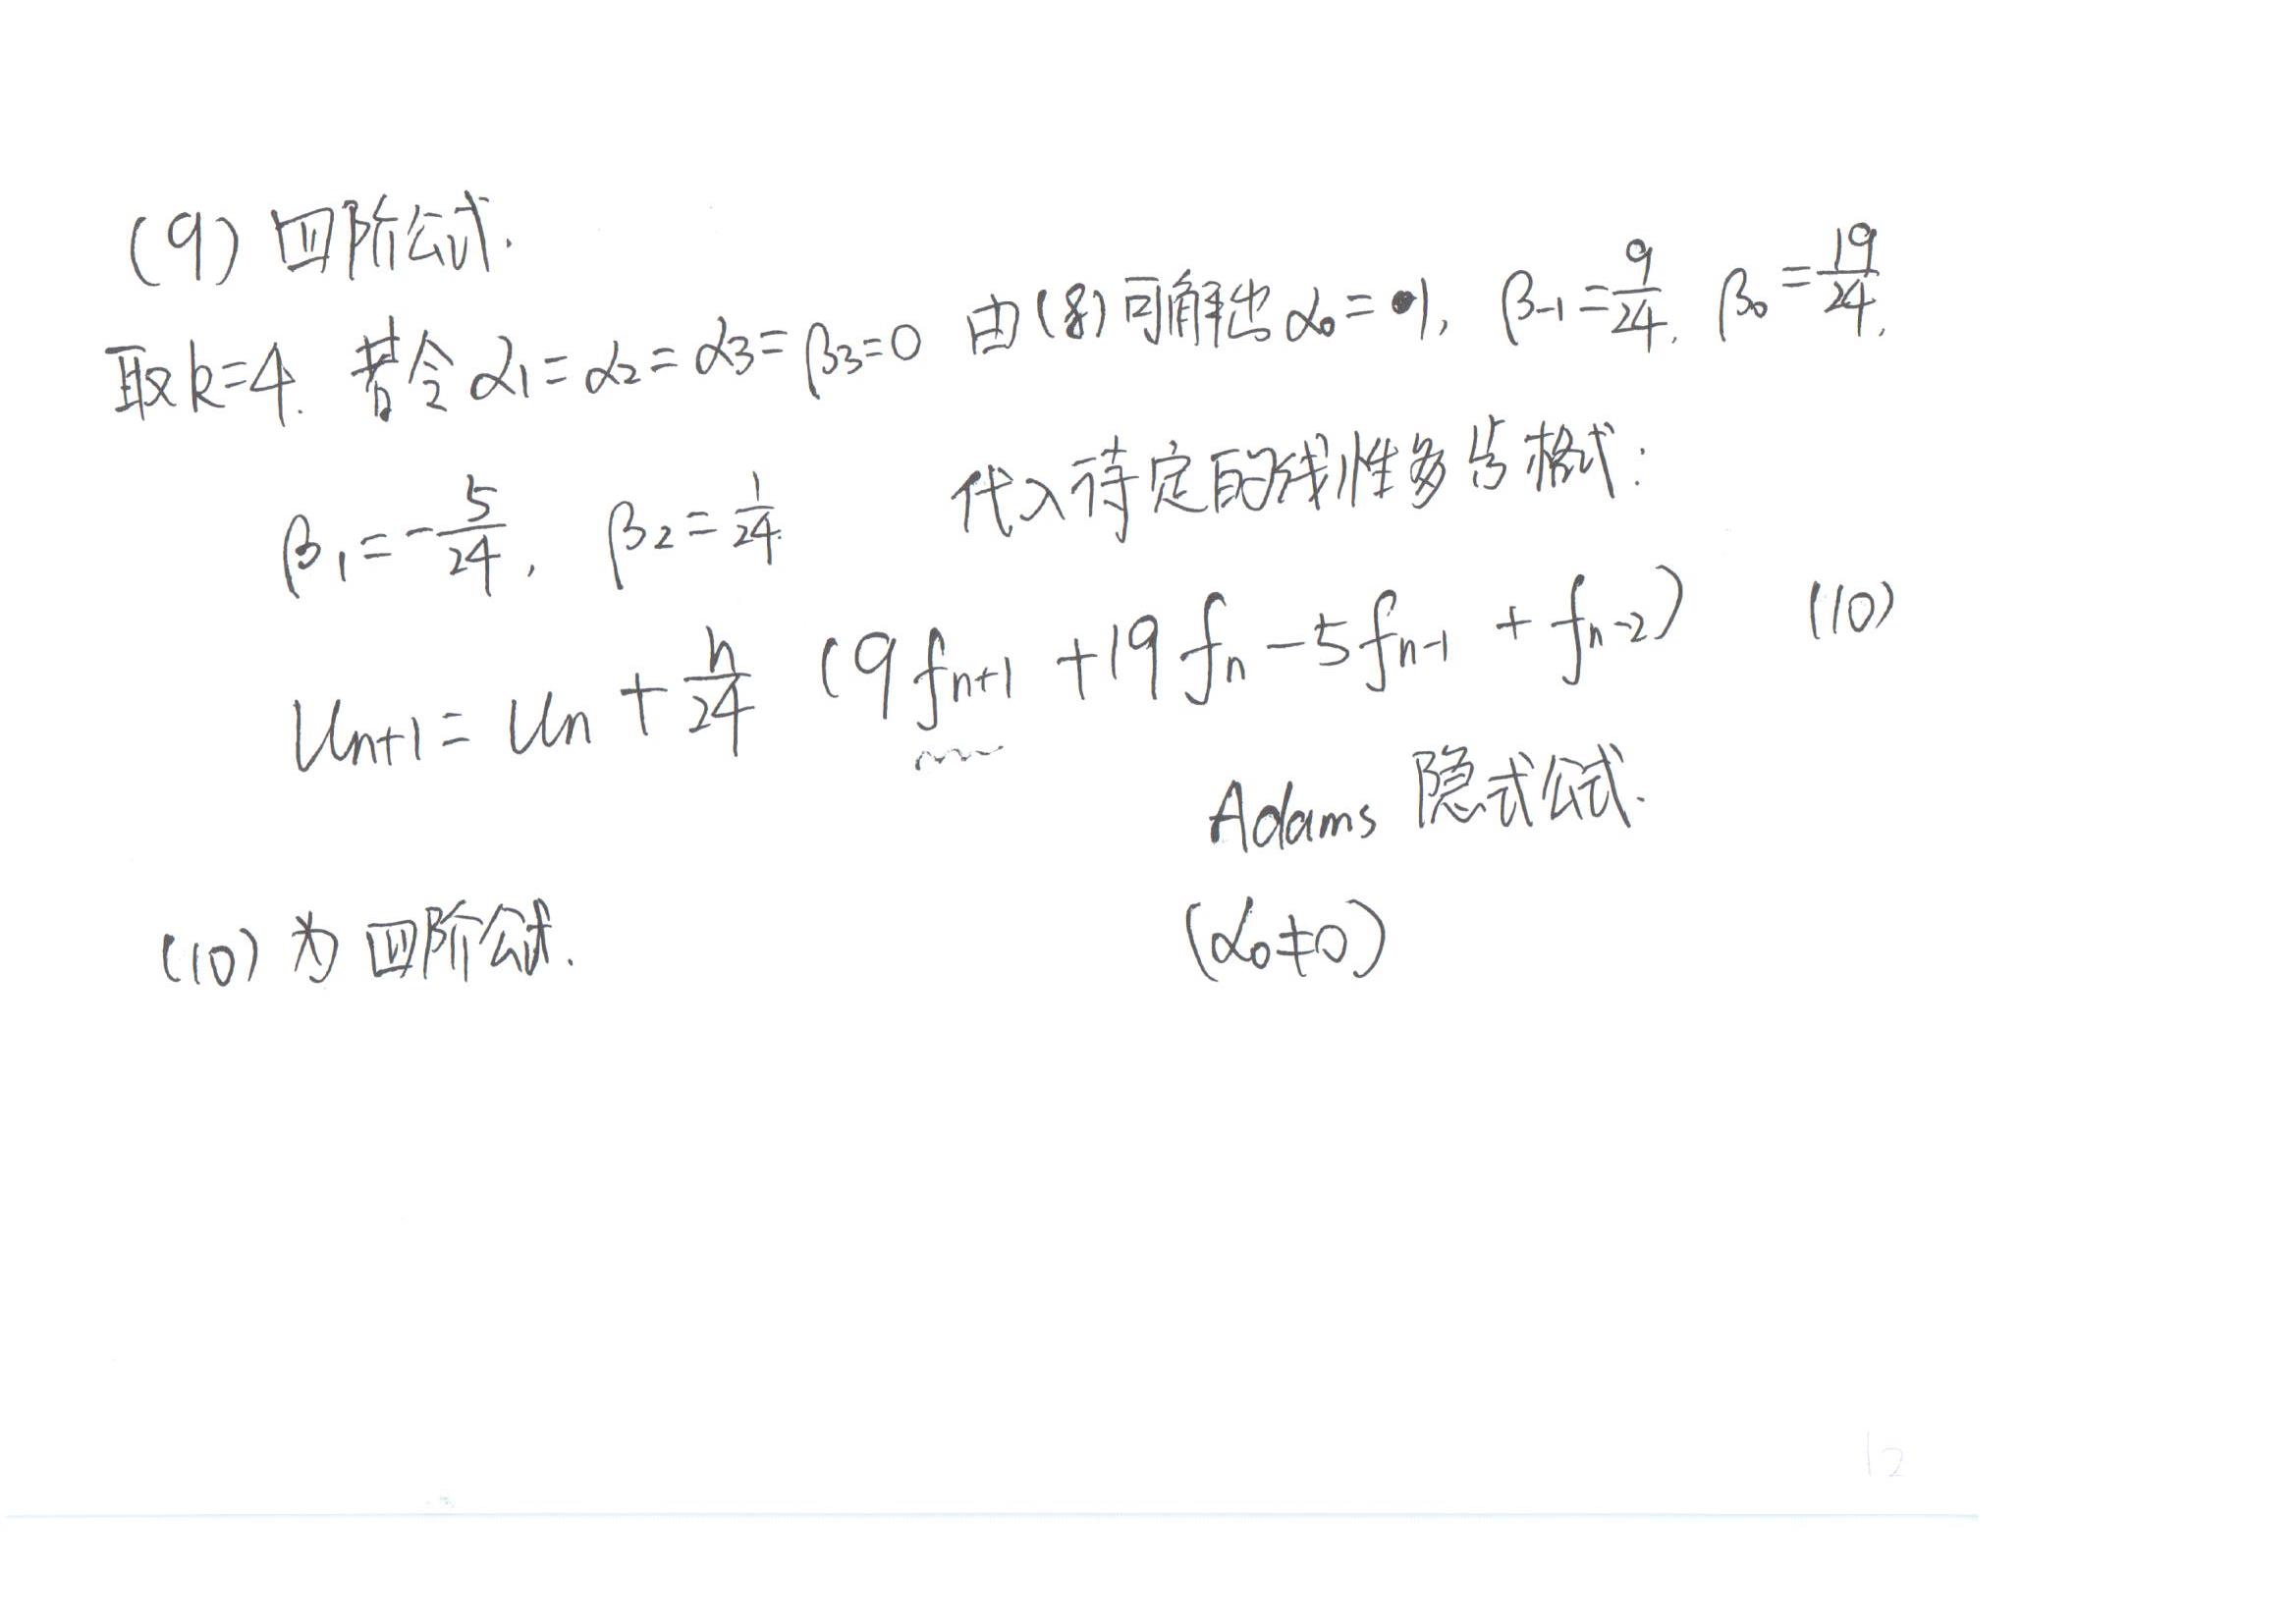 (9) 四阶公式.
取k=4. 若令 α₁=α₂=α₃=β₃=0 由(8)可解出 α₀=1, β₋₁=9/24, β₀=19/24,
β₁=-5/24, β₂=1/24 代入待定的线性多步格式:
Uₙ₊₁=Uₙ+h/24 (9fₙ₊₁+19fₙ-5fₙ₋₁+fₙ₋₂) (10)
Adams 隐式公式.
(10)为四阶公式. (α₀≠0)
12